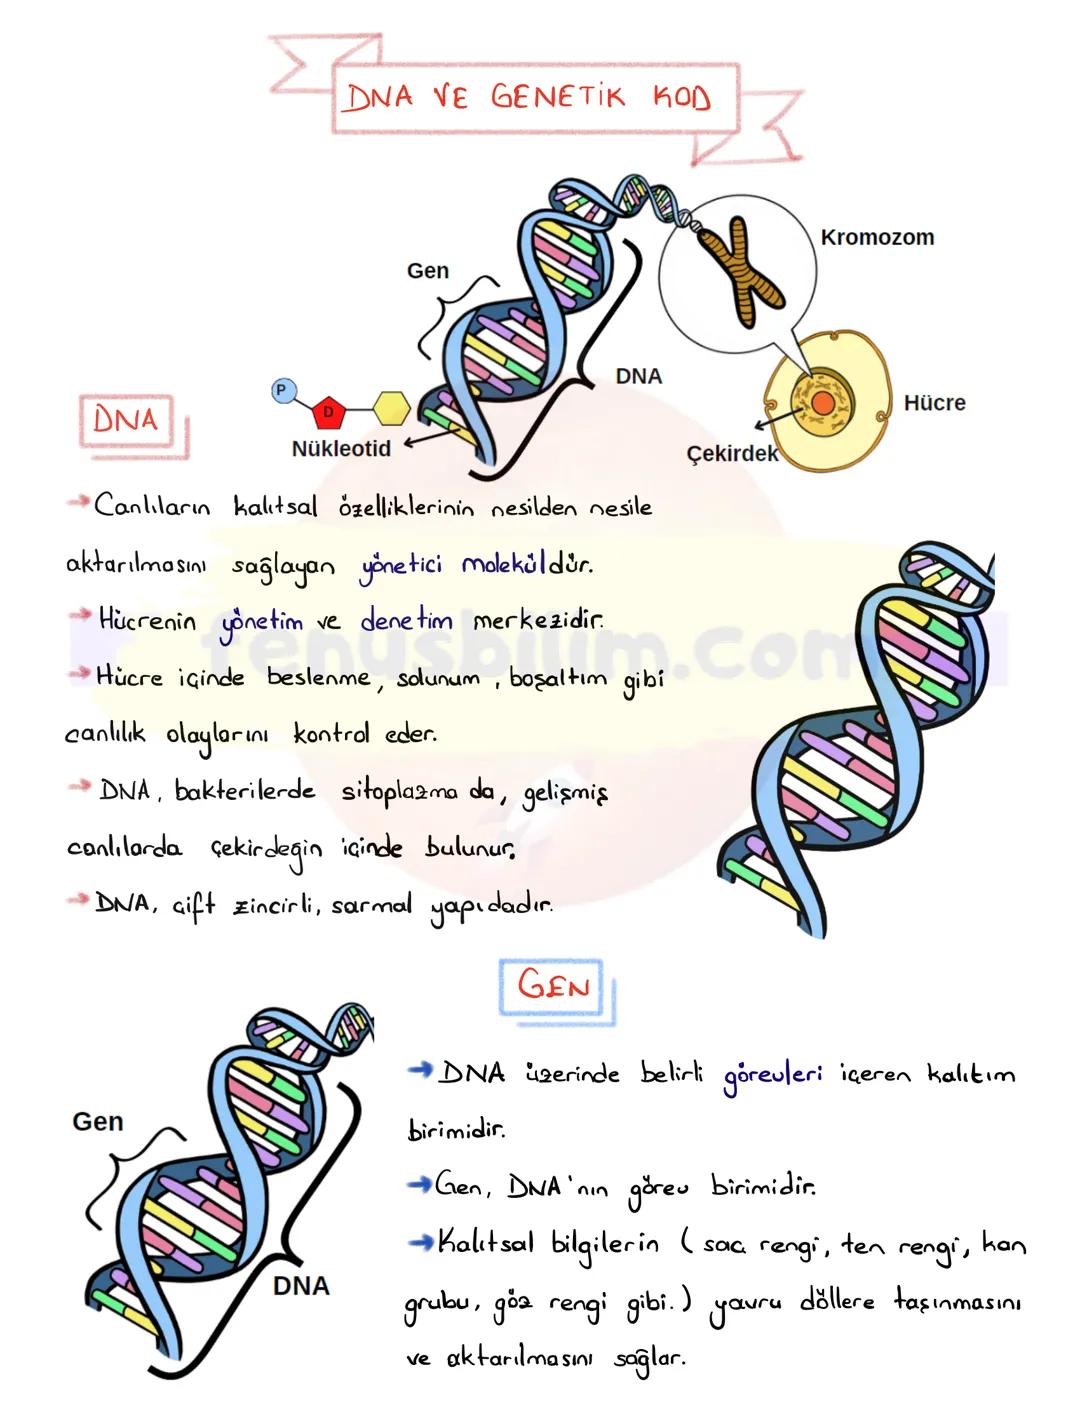 DNA VE GENETİK KOD
Kromozom
Gen
DNA
P
D
Hücre
Nükleotid
Çekirdek
DNA
→ Canlıların kalıtsal özelliklerinin nesilden nesile
aktarılmasını sağlayan yönetici moleküldür.
→ Hücrenin yönetim ve denetim merkezidir.
fenusbilim.com
→ Hücre içinde beslenme, solunum, boşaltım gibi
canlılık olaylarını kontrol eder.
→ DNA, bakterilerde sitoplazma da, gelişmiş
canlılarda çekirdeğin içinde bulunur.
→ DNA, çift zincirli, sarmal yapıdadır.
GEN
→ DNA üzerinde belirli görevleri içeren kalıtım
birimidir.
Gen
→ Gen, DNA'nın görev birimidir.
→ Kalıtsal bilgilerin ( saç rengi, ten rengi, kan
DNA
grubu, göz rengi gibi.) yavru döllere taşınmasını
ve aktarılmasını sağlar.